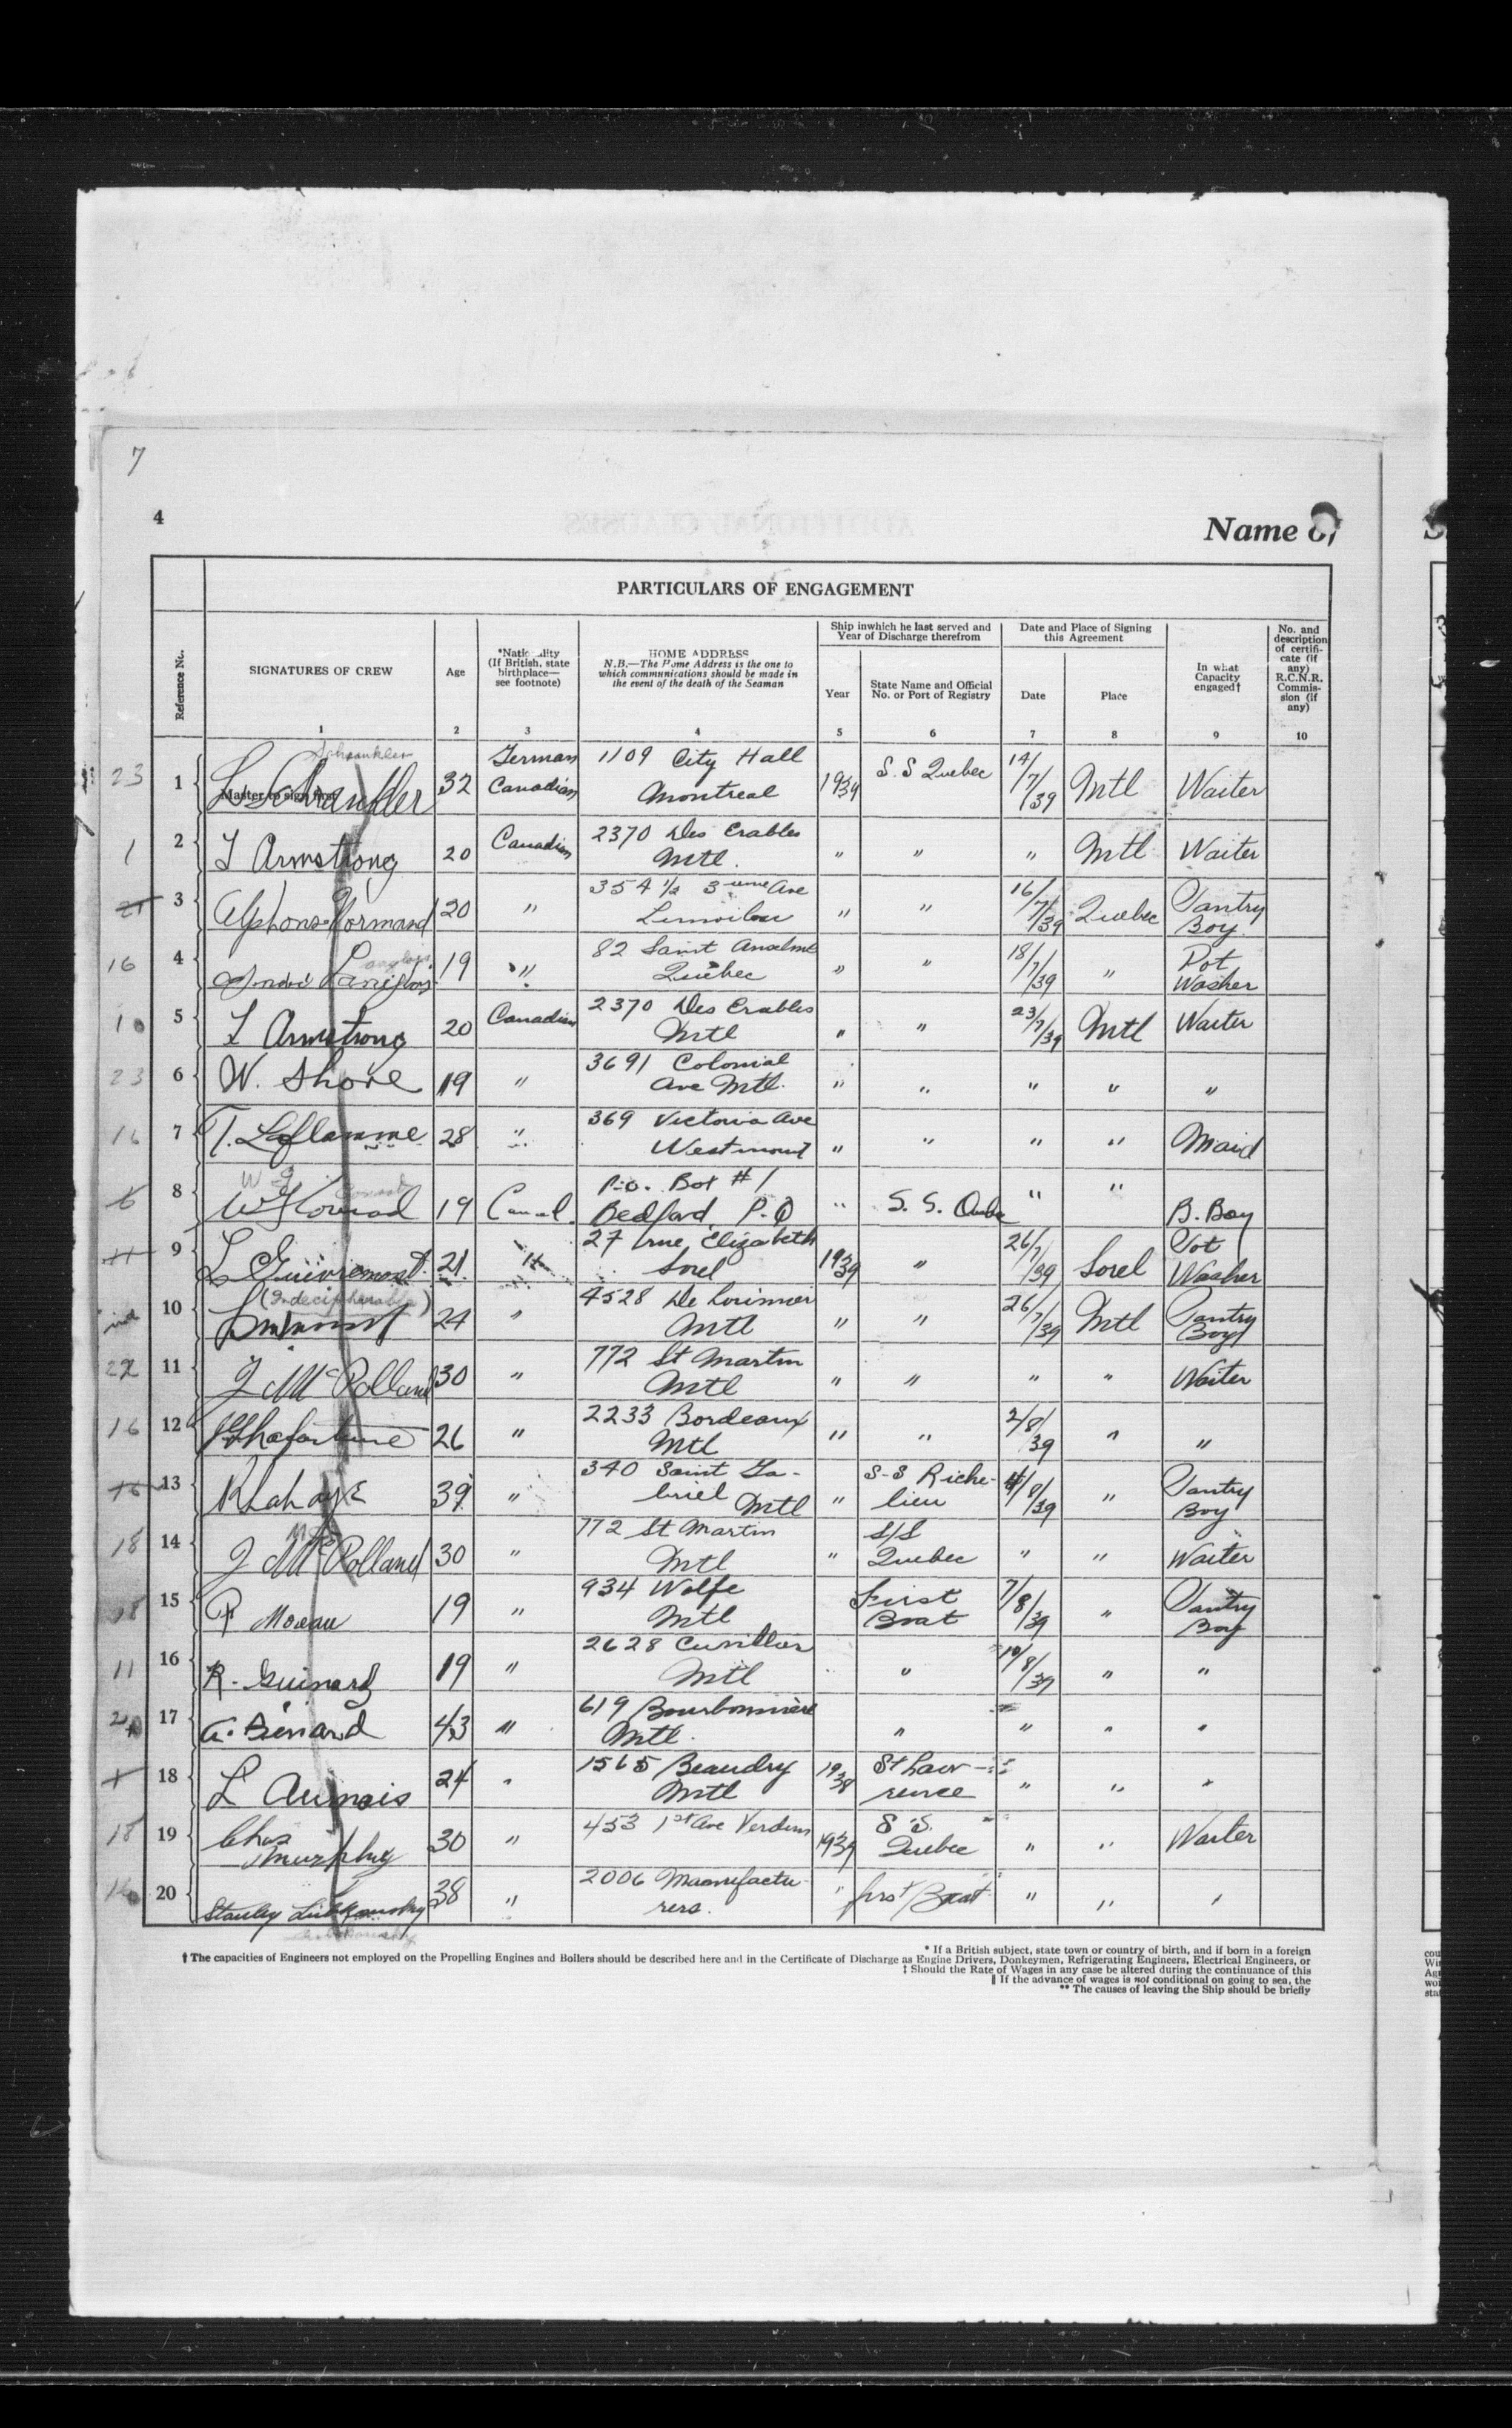 7
4
Name of
PARTICULARS OF ENGAGEMENT
Reference No.
SIGNATURES OF CREW
Age
*Nationality
(If British, state
birthplace—
see footnote)
HOME ADDRESS
N.B.—The Home Address is the one to
which communications should be made in
the event of the death of the Seaman
Ship inwhich he last served and
Year of Discharge therefrom
Year
State Name and Official
No. or Port of Registry
Date and Place of Signing
this Agreement
Date
Place
In what
Capacity
engaged†
No. and
description
of certifi-
cate (if
any)
R.C.N.R.
Commis-
sion (if
any)
1 2 3 4 5 6 7 8 9 10
Schrankler
23 1 32 German Canadian 1109 City Hall Montreal 1939 S.S Quebec 14/7/39 Mtl Waiter
Master to sign first
1 2 L Armstrong 20 Canadian 2370 Des Erables Mtl. " " " Mtl Waiter
21 3 Alphonse Normand 20 " 354 1/2 3 ieme Ave Limoilou " " 16/7/39 Quebec Pantry Boy
Langlois
16 4 André Langlois 19 " 82 Saint Anselme Québec " " 18/7/39 " Pot Washer
10 5 L Armstrong 20 Canadian 2370 Des Erables Mtl " " 23/7/39 Mtl Waiter
23 6 W. Shore 19 " 3691 Colonial Ave Mtl. " " " " "
16 7 T. Laflamme 28 " 369 Victoria Ave Westmount " " " " Maid
W J Conrad
6 8 W J Conrad 19 Canad. P.O. Box # 1 Bedford, P.Q " S. S. Quebec " " B. Boy
11 9 L Guévremont 21 " 27 rue Elizabeth Sorel 1939 " 26/7/39 Sorel Pot Washer
(Indecipherable)
ind 10 24 " 4528 De Lorimier Mtl " " 26/7/39 Mtl Pantry Boy
22 11 J McRolland 30 " 772 St Martin Mtl " " " " Waiter
16 12 Lafortune 26 " 2233 Bordeaux Mtl " " 2/8/39 " "
16 13 R Lahaye 39 " 340 Saint Ga-briel Mtl " S-S Riche-lieu 4/8/39 " Pantry Boy
Mc
18 14 J McRolland 30 " 772 St Martin Mtl " S/S Quebec " " Waiter
18 15 P Moreau 19 " 934 Wolfe Mtl First Boat 7/8/39 " Pantry Boy
11 16 R. Guinard 19 " 2628 Cuvillier Mtl " 10/8/39 " "
17 A. Bénard 43 " 619 Bourbonnière Mtl. " " " "
1 18 L Aumais 24 " 1565 Beaudry Mtl 1938 St Law-rence " " "
18 19 Chas Murphy 30 " 453 1st Ave Verdun 1939 S.S. Quebec " " Waiter
16 20 Stanley 38 " 2006 Maanufactu-rers. " first Boat " " "
* If a British subject, state town or country of birth, and if born in a foreign
† The capacities of Engineers not employed on the Propelling Engines and Boilers should be described here and in the Certificate of Discharge as Engine Drivers, Donkeymen, Refrigerating Engineers, Electrical Engineers, or
‡ Should the Rate of Wages in any case be altered during the continuance of this
‖ If the advance of wages is not conditional on going to sea, the
** The causes of leaving the Ship should be briefly